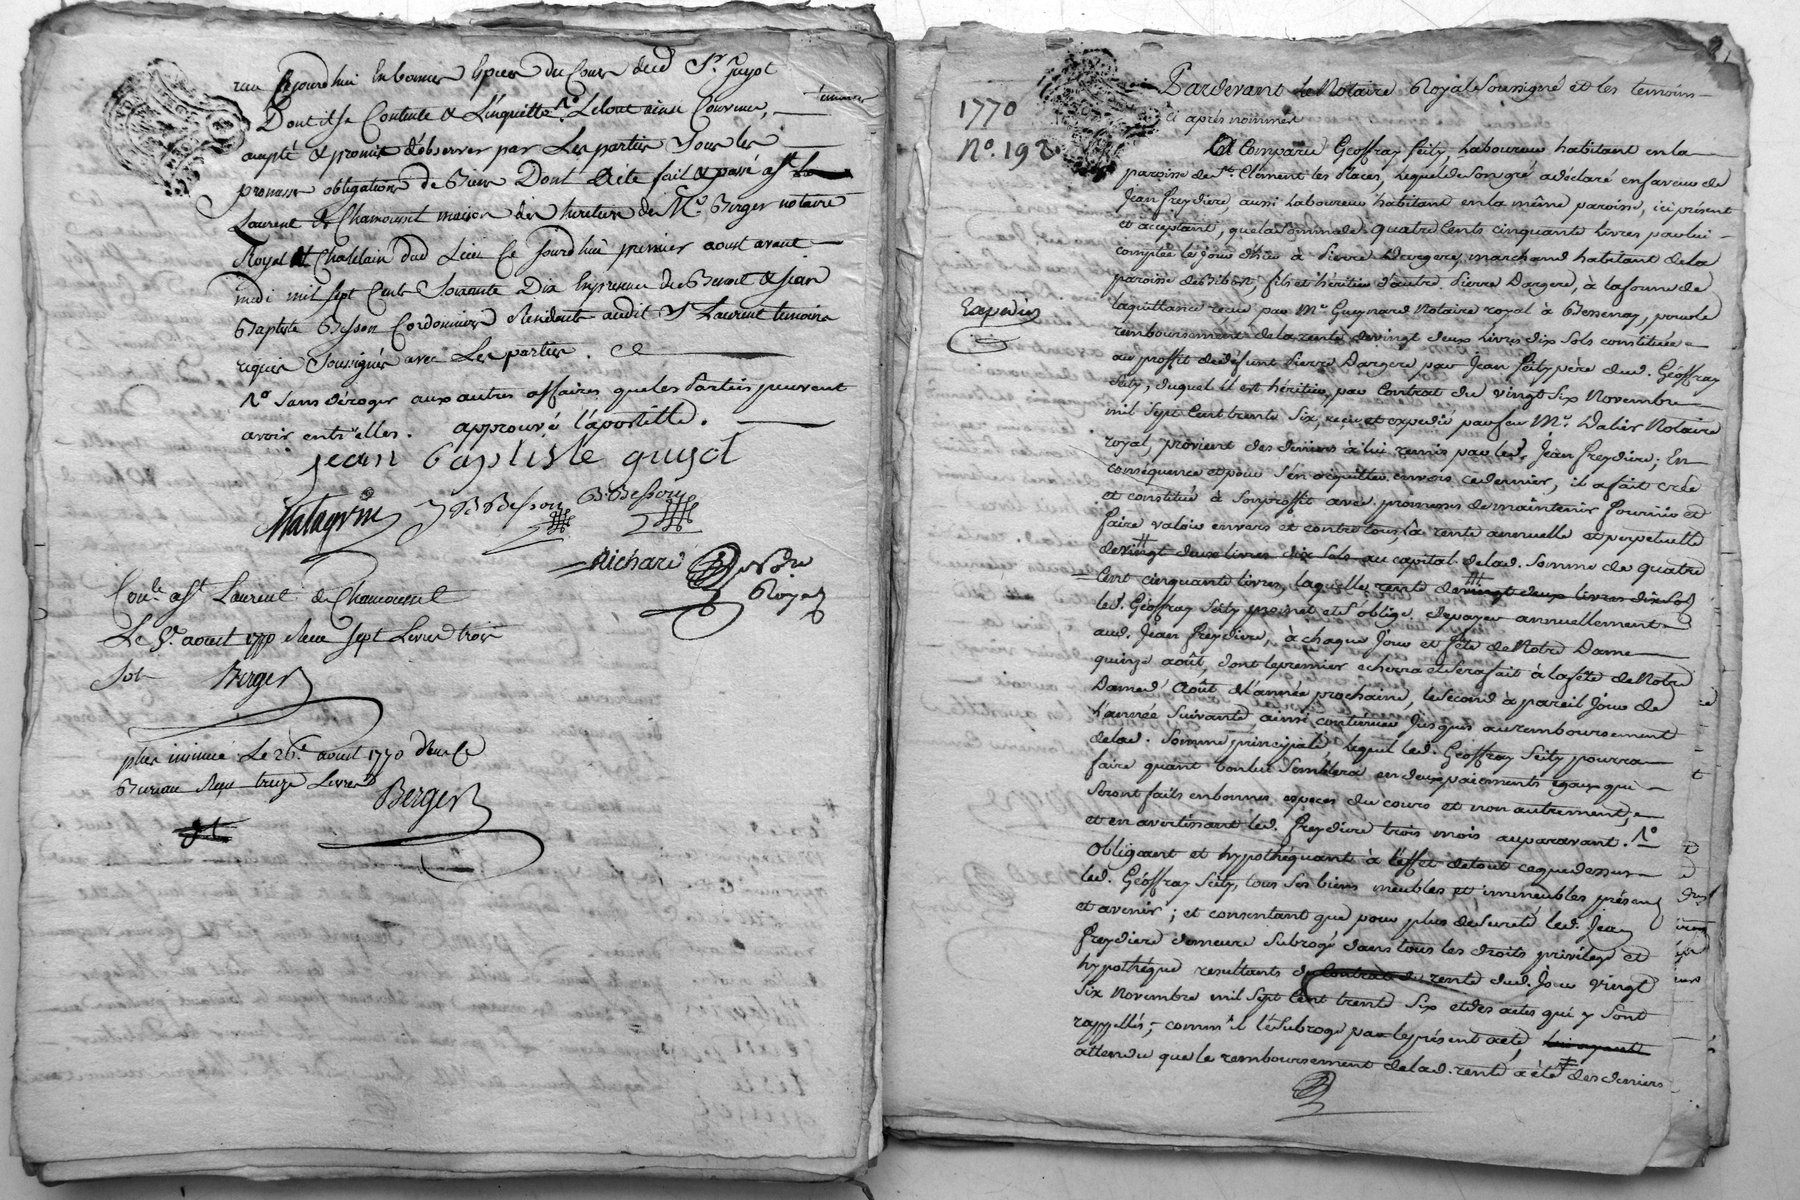 reçu ce jourd'hui en bonnes espèces du cours dud. Sr. Guyot
Dont il se Contente & L'enquitte. No Le tout ainsi Convenu,
accepté & promis d'observer par Les parties sous les
promesses obligations de Biens Dont Acte fait & passé a St.
Laurent de Chamousset maison des heritiers de Me. Berger notaire
Royal & Chatelain dud Lieu Ce Jourd'hui premier aoust avant
midi mil sept Cents Soixante Dix En presence de Benoit & Jean
Baptiste Besson Cordonniers Residents audit St. Laurent temoins
requis Soussignés avec Les parties.
No sans déroger aux autres affaires que les Parties peuvent
avoir entr'elles. approuvé l'apostille.
jean baptiste guyot
Matagrin J B Besson B. Besson
Richard Nre
Royal
Con.lé a St. Laurent de Chamousset
Le 5e. aoust 1770 Reçu sept Livres trois
Sols Berger
plus insinué Le 26e. aoust 1770 de Ce
Bureau Reçu treize Livres
Berger
1770
No. 192
Expedié
Pardevant Le Notaire Royal Soussigné et les temoins
ci après nommés
Est Comparu Geoffray Seity, Laboureur habitant en la
paroisse de St. Clément les Places, Lequel de son gré a déclaré en faveur de
Jean Freydiere, aussi Laboureur habitant en la même paroisse, ici présent
et acceptant, que la Somme de quatre Cents cinquante Livres par lui
comptée le Jour d'hier à Pierre Dargere, marchand habitant de la
paroisse de Bibost, fils et héritier d'autre Pierre Dargere, à la forme de
la quittance recue par Me. Gueynard Notaire royal à Bessenay, pour le
remboursement de la rente de vingt deux Livres dix Sols constituée
au proffit de défunt Pierre Dargere, par Jean Seity père dud. Geoffray
Seity, duquel il est héritier, par Contrat du vingt Six Novembre
mil Sept Cent trente Six, reçu et expedié par feu Me. Dalier Notaire
royal, provient des deniers à lui remis par led. Jean Freydiere; En
conséquence et pour s'en acquitter envers ce dernier, il a fait créé
et constitué à Son proffit avec promesse de maintenir fournir et
faire valoir envers et contre tous, la rente annuelle et perpetuelle
de vingt deux livres dix Sols au capital de lad. Somme de quatre
Cent cinquante livres, laquelle rente de vingt deux livres dix Sols
led. Geoffray Seity promet et S'oblige de payer annuellement
aud. Jean Freydiere, à chaque Jour et fête de Notre Dame
quinze août, dont le premier echerra et Sera fait à la fête de Notre
Dame d'Août de l'année prochaine, le Second à pareil Jour de
L'année Suivante ainsi continuer Jusques au remboursement
de lad. Somme principale lequel led. Geoffray Seity pourra
faire quant bon lui Semblera en deux paiements egaux qui
Seront faits en bonnes especes du cours et non autrement,
et en avertissant led. Freydiere trois mois auparavant. No
obligeant et hypothéquant à l'effet de tout ce que dessus
led. Geoffray Seity tous Ses biens meubles et immeubles présens
et avenir; et consentant que pour plus de Sureté led. Jean
Freydiere demeure Subrogé dans tous les droits privilege et
hypothéque resultants du Contrat de rente dud. Jour vingt
Six Novembre mil Sept Cent trente Six et des actes qui y Sont
rappellés, comm'il l'e Subroge par le présent acte,
attendu que le remboursement de lad. rente a été des deniers